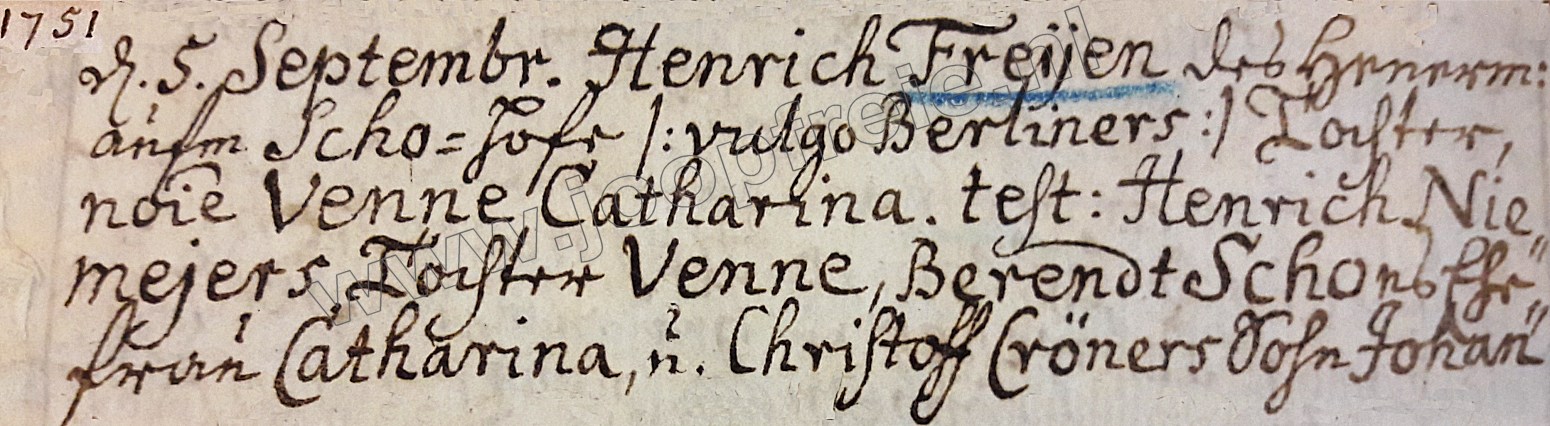 1751
d. 5. Septembr. Henrich Freijen des Heuerm:
aufm Scho=hofe /: vulgo Berliners :/ Tochter,
noie Venne Catharina. test: Henrich Nie
mejers Tochter Venne, Berendt Schons Ehe"
frau Catharina, u. Christoff Cröners Sohn Johan
www.jcoopfreie.nl